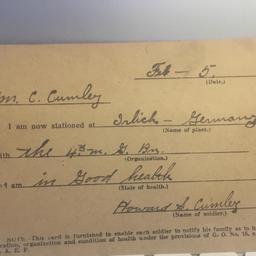 Feb - 5.
(Date.)
m. C. Cumley
I am now stationed at Irlich - Germany
(Name of place.)
ith the 4th M. G. Bn.
(Organization.)
I am in Good health
(State of health.)
Howard S. Cumley
(Name of soldier.)
NOTE—This card is furnished to enable each soldier to notify his family as to h
cation, organization and condition of health under the provisions of G. O. No. 18, s
A. E. F.